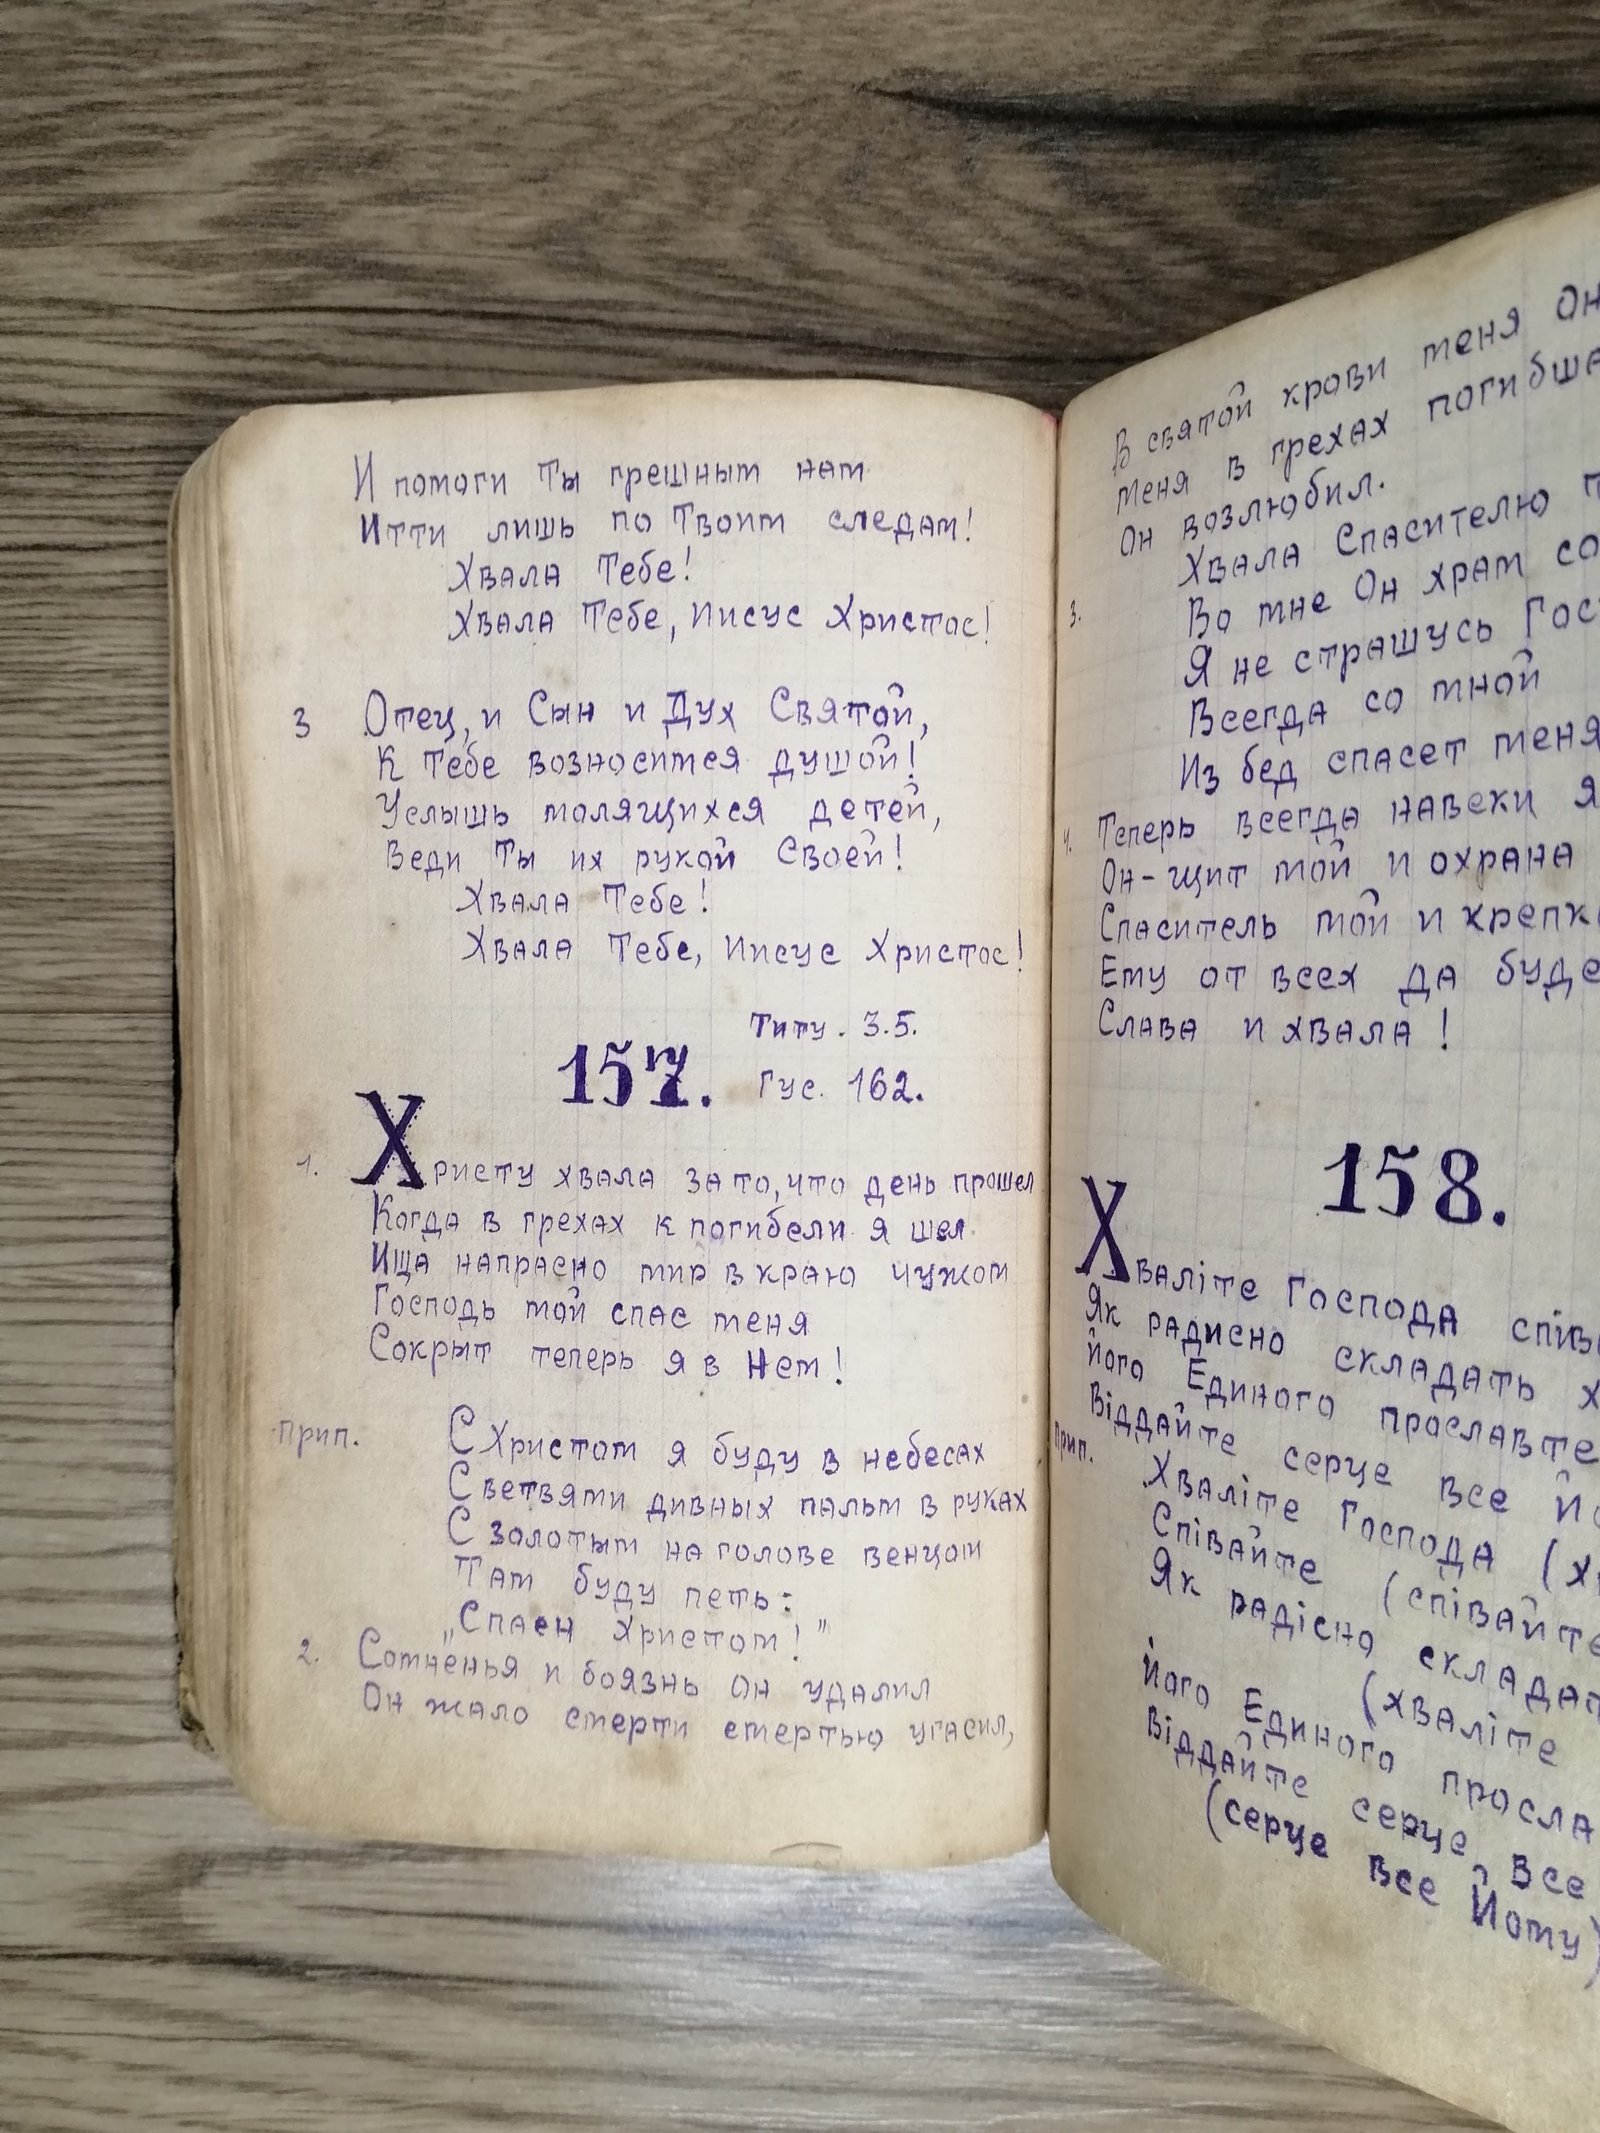 И помоги Ты грешным нам
Итти лишь по Твоим следам!
Хвала Тебе!
Хвала Тебе, Иисус Христос!
3 Отец, и Сын и Дух Святой,
К Тебе возносимся душой!
Услышь молящихся детей,
Веди Ты их рукой Своей!
Хвала Тебе!
Хвала Тебе, Иисус Христос!
Титу. 3.5.
157. Гус. 162.
1. Христу хвала за то, что день прошел
Когда в грехах к погибели я шел
Ища напрасно мир в краю чужом
Господь мой спас меня
Сокрыт теперь я в Нем!
Прип. С Христом я буду в небесах
С ветвями дивных пальм в руках
С золотым на голове венцом
Там буду петь:
„Спасен Христом!"
2. Сомненья и боязнь Он удалил
Он жало смерти смертью угасил,
В святой крови меня Он
меня в грехах погибша
Он возлюбил.
Хвала Спасителю
3. Во мне Он храм со
Я не страшусь Гос
Всегда со мной
Из бед спасет меня
4. Теперь всегда навеки я
Он-щит мой и охрана
Спаситель мой и крепк
Ему от всех да буде
Слава и хвала!
158.
Хваліте Господа співа
Як радисно складать х
Його Единого прославте
Віддайте серце все Йо
Прип. Хваліте Господа (х
Співайте (співайте
Як радісно складат
(хваліте
Його Единого просла
Віддайте серце все
(серце все Йому)